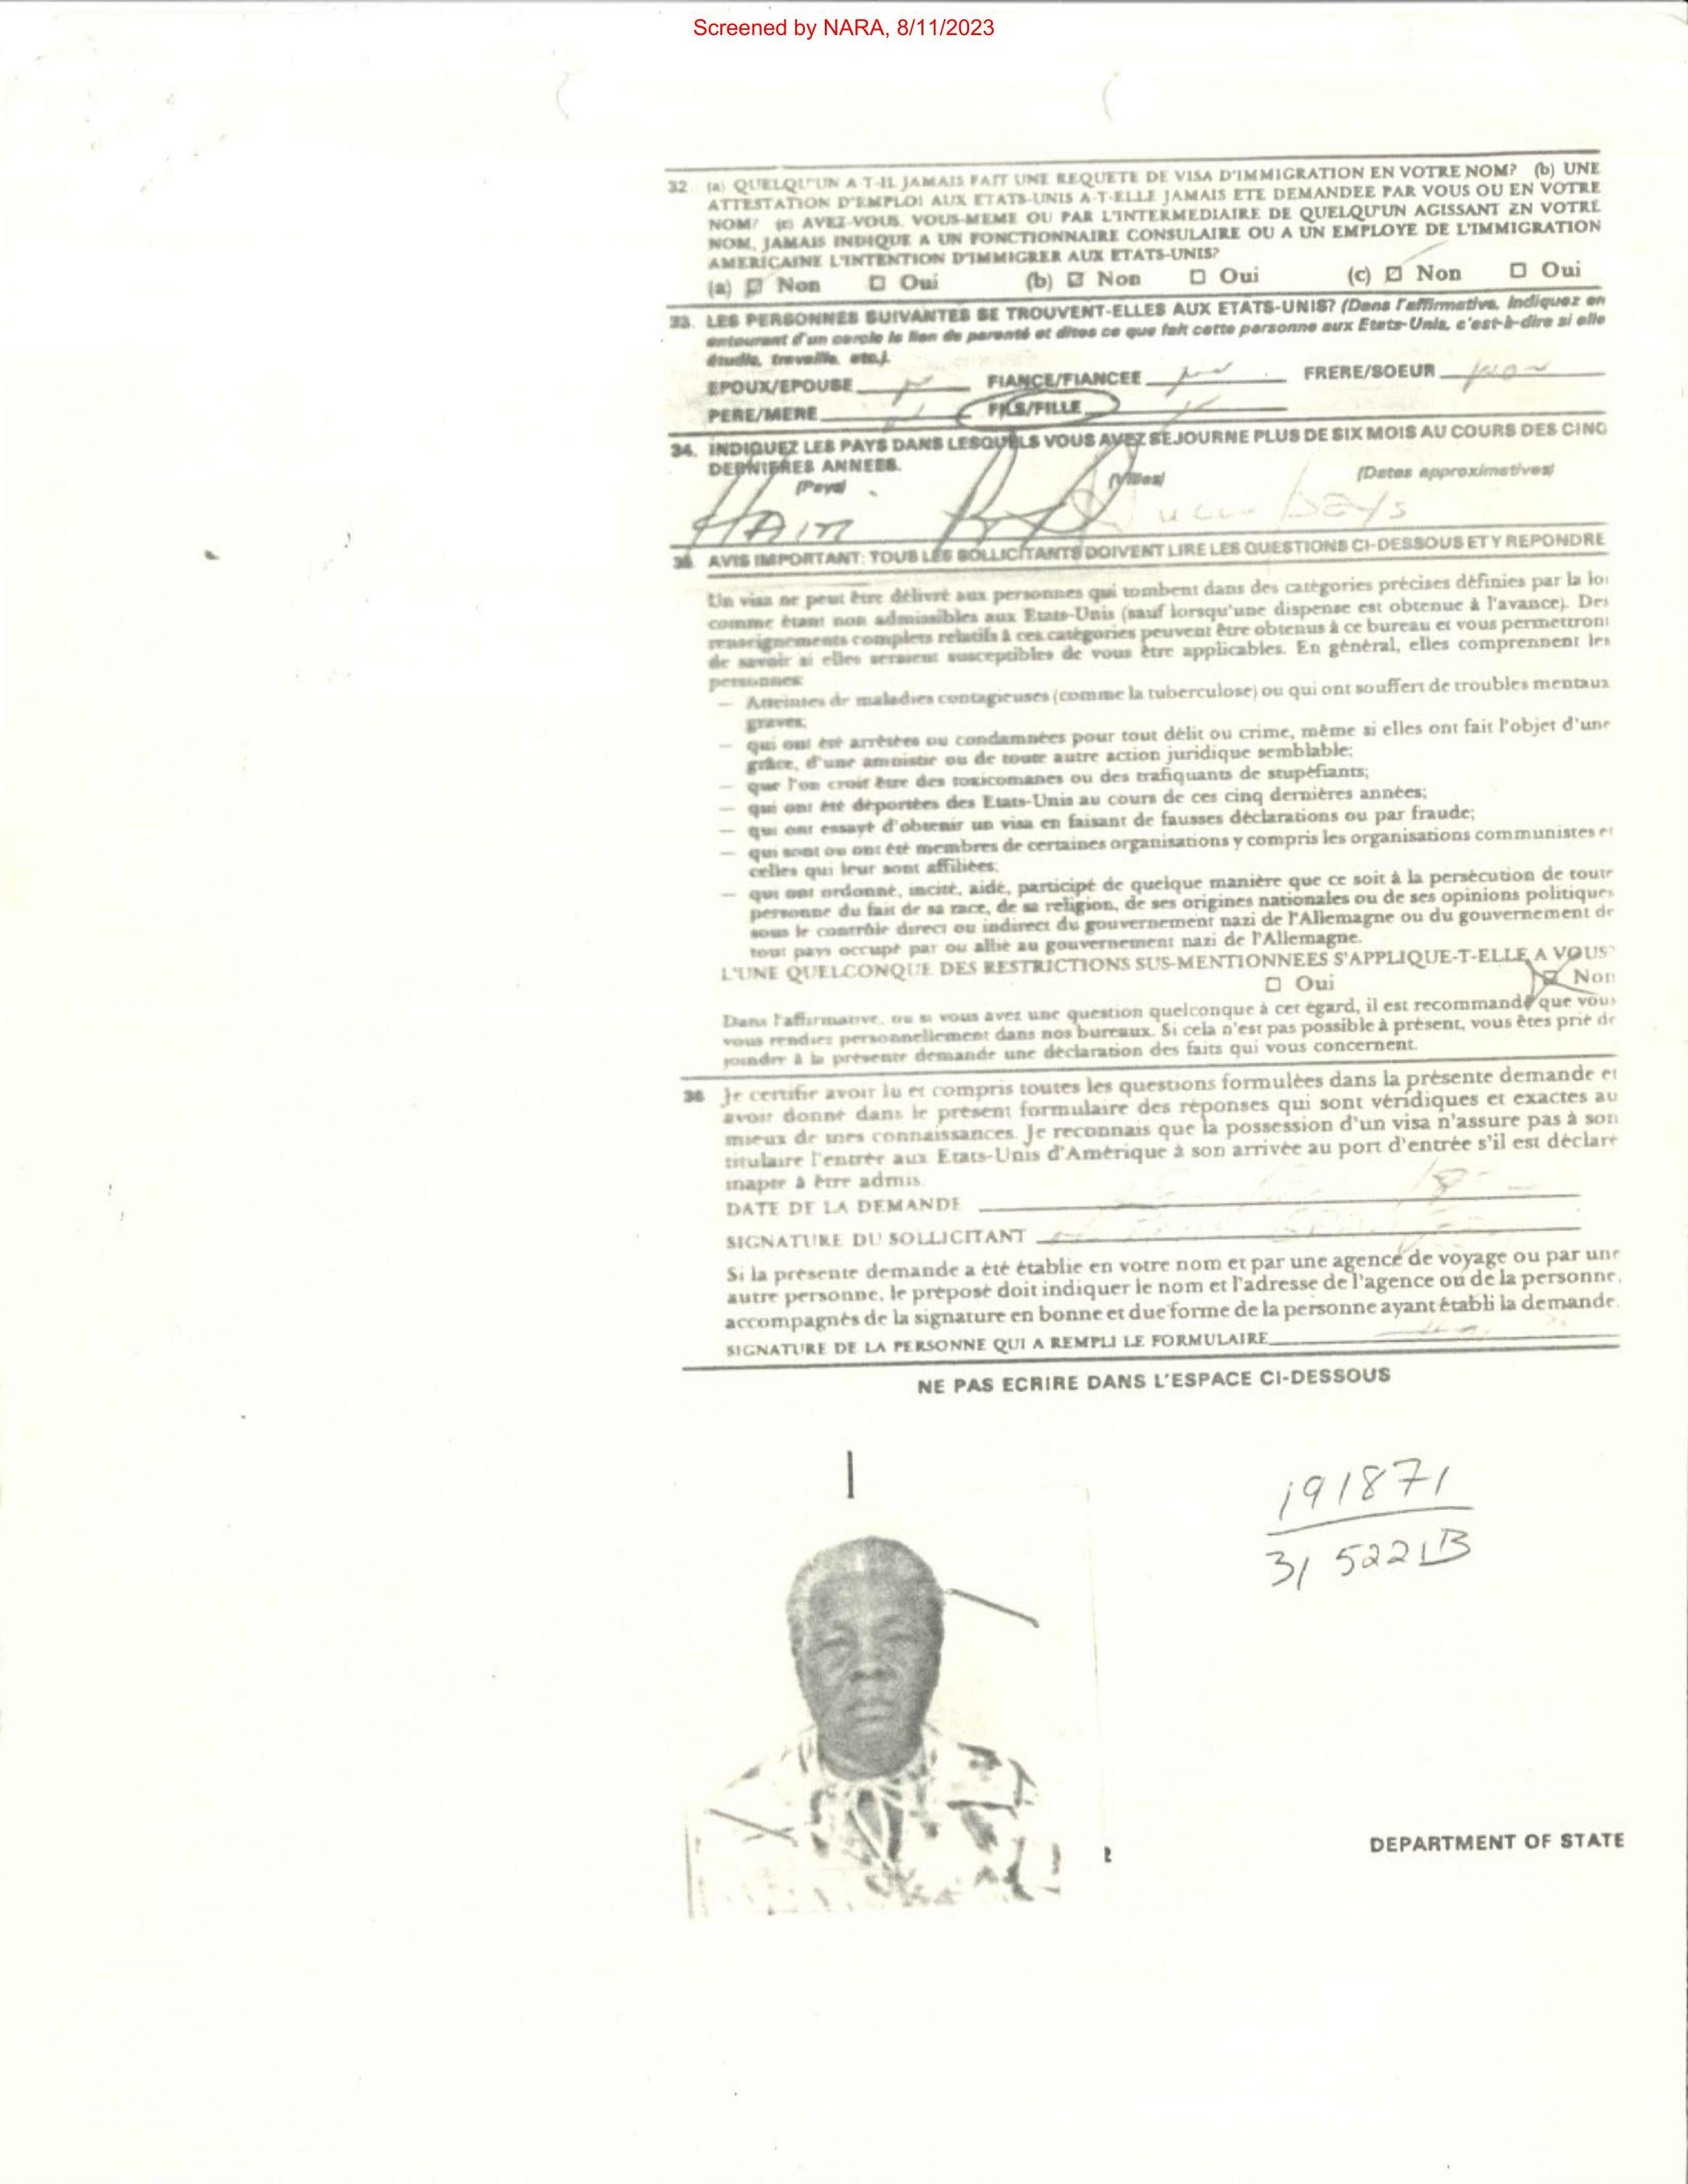 Screened by NARA, 8/11/2023
32 (a) QUELQU'UN A-T-IL JAMAIS FAIT UNE REQUETE DE VISA D'IMMIGRATION EN VOTRE NOM? (b) UNE
ATTESTATION D'EMPLOI AUX ETATS-UNIS A-T-ELLE JAMAIS ETE DEMANDEE PAR VOUS OU EN VOTRE
NOM? (c) AVEZ-VOUS, VOUS-MEME OU PAR L'INTERMEDIAIRE DE QUELQU'UN AGISSANT EN VOTRE
NOM, JAMAIS INDIQUE A UN FONCTIONNAIRE CONSULAIRE OU A UN EMPLOYE DE L'IMMIGRATION
AMERICAINE L'INTENTION D'IMMIGRER AUX ETATS-UNIS?
(a) ☑ Non ☐ Oui (b) ☑ Non ☐ Oui (c) ☑ Non ☐ Oui
33. LES PERSONNES SUIVANTES SE TROUVENT-ELLES AUX ETATS-UNIS? (Dans l'affirmative, Indiquez en
entourant d'un cercle le lien de parenté et dites ce que fait cette personne aux Etats-Unis, c'est-à-dire si elle
étudie, travaille, etc.).
EPOUX/EPOUSE FIANCE/FIANCEE FRERE/SOEUR non
PERE/MERE FILS/FILLE
34. INDIQUEZ LES PAYS DANS LESQUELS VOUS AVEZ SEJOURNE PLUS DE SIX MOIS AU COURS DES CINQ
DERNIERES ANNEES.
(Pays) (Villes) (Dates approximatives)
HAITI
35. AVIS IMPORTANT: TOUS LES SOLLICITANTS DOIVENT LIRE LES QUESTIONS CI-DESSOUS ET Y REPONDRE
Un visa ne peut être délivré aux personnes qui tombent dans des catégories précises définies par la loi
comme étant non admissibles aux Etats-Unis (sauf lorsqu'une dispense est obtenue à l'avance). Des
renseignements complets relatifs à ces catégories peuvent être obtenus à ce bureau et vous permettront
de savoir si elles seraient susceptibles de vous être applicables. En général, elles comprennent les
personnes:
— Atteintes de maladies contagieuses (comme la tuberculose) ou qui ont souffert de troubles mentaux
graves;
— qui ont été arrêtées ou condamnées pour tout délit ou crime, même si elles ont fait l'objet d'une
grâce, d'une amnistie ou de toute autre action juridique semblable;
— que l'on croit être des toxicomanes ou des trafiquants de stupéfiants;
— qui ont été déportées des Etats-Unis au cours de ces cinq dernières années;
— qui ont essayé d'obtenir un visa en faisant de fausses déclarations ou par fraude;
— qui sont ou ont été membres de certaines organisations y compris les organisations communistes et
celles qui leur sont affiliées;
— qui ont ordonné, incité, aidé, participé de quelque manière que ce soit à la persécution de toute
personne du fait de sa race, de sa religion, de ses origines nationales ou de ses opinions politiques
sous le contrôle direct ou indirect du gouvernement nazi de l'Allemagne ou du gouvernement de
tout pays occupé par ou allié au gouvernement nazi de l'Allemagne.
L'UNE QUELCONQUE DES RESTRICTIONS SUS-MENTIONNEES S'APPLIQUE-T-ELLE A VOUS?
☐ Oui ☑ Non
Dans l'affirmative, ou si vous avez une question quelconque à cet égard, il est recommandé que vous
vous rendiez personnellement dans nos bureaux. Si cela n'est pas possible à présent, vous êtes prié de
joindre à la présente demande une déclaration des faits qui vous concernent.
36 Je certifie avoir lu et compris toutes les questions formulées dans la présente demande et
avoir donné dans le présent formulaire des réponses qui sont véridiques et exactes au
mieux de mes connaissances. Je reconnais que la possession d'un visa n'assure pas à son
titulaire l'entrée aux Etats-Unis d'Amérique à son arrivée au port d'entrée s'il est déclaré
inapte à être admis
DATE DE LA DEMANDE
SIGNATURE DU SOLLICITANT
Si la présente demande a été établie en votre nom et par une agence de voyage ou par une
autre personne, le préposé doit indiquer le nom et l'adresse de l'agence ou de la personne,
accompagnés de la signature en bonne et due forme de la personne ayant établi la demande.
SIGNATURE DE LA PERSONNE QUI A REMPLI LE FORMULAIRE
NE PAS ECRIRE DANS L'ESPACE CI-DESSOUS
191871
31 5221B
DEPARTMENT OF STATE